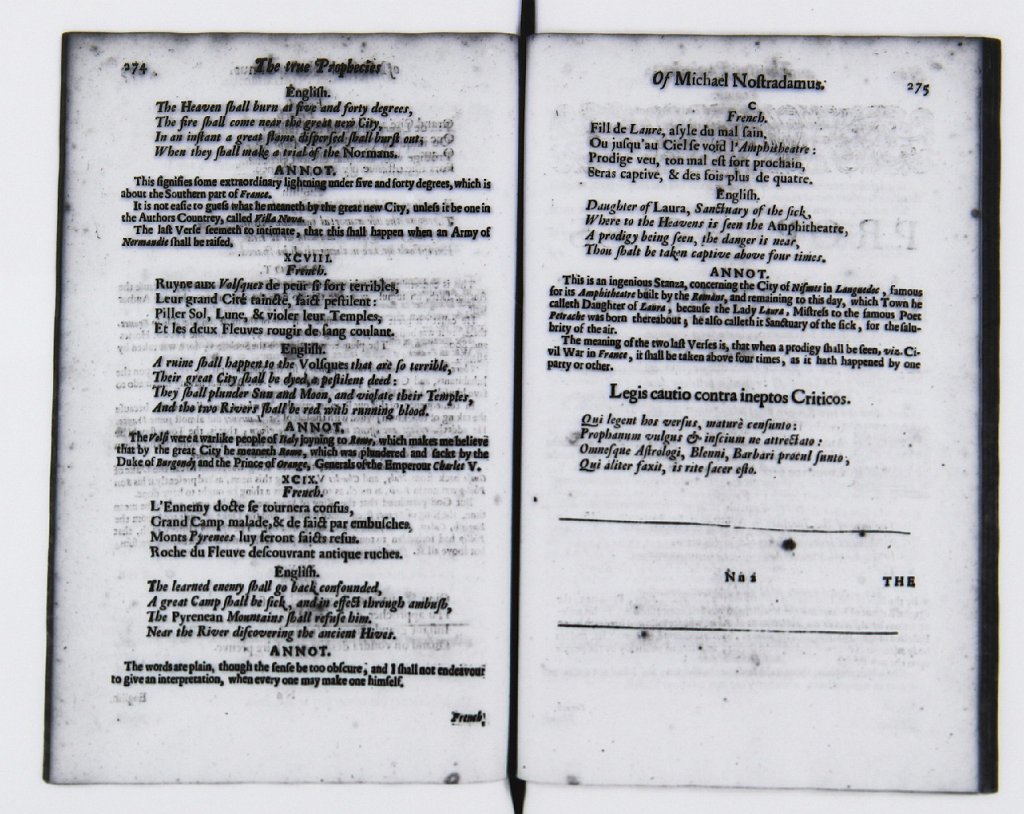 274 The true Prophecies
Engliſh.
The Heaven ſhall burn at five and forty degrees,
The fire ſhall come near the great new City,
In an inſtant a great flame diſperſed ſhall burſt out,
When they ſhall make a trial of the Normans.
ANNOT.
This ſignifies ſome extraordinary lightning under five and forty degrees, which is
about the Southern part of France.
It is not eaſie to gueſs what he meaneth by the great new City, unleſs it be one in
the Authors Countrey, called Villa Nova.
The laſt Verſe ſeemeth to intimate, that this ſhall happen when an Army of
Normandie ſhall be raiſed,
XCVIII.
French.
Ruyne aux Volſques de peur ſi fort terribles,
Leur grand Cité taincte, faict peſtilent:
Piller Sol, Lune, & violer leur Temples,
Et les deux Fleuves rougir de ſang coulant.
Engliſh.
A ruine ſhall happen to the Volſques that are ſo terrible,
Their great City ſhall be dyed, a peſtilent deed:
They ſhall plunder Sun and Moon, and violate their Temples,
And the two Rivers ſhall be red with running blood.
ANNOT.
The Volſi were a warlike people of Italy joyning to Rome, which makes me believe
that by the great City he meaneth Rome, which was plundered and ſackt by the
Duke of Burgondy and the Prince of Orange, Generals of the Emperour Charles V.
XCIX.
French.
L'Ennemy docte ſe tournera confus,
Grand Camp malade, & de faict par embuſches,
Monts Pyrenees luy feront faicts refus.
Roche du Fleuve deſcouvrant antique ruches.
Engliſh.
The learned enemy ſhall go back confounded,
A great Camp ſhall be ſick, and in effect through ambuſh,
The Pyrenean Mountains ſhall refuſe him.
Near the River diſcovering the ancient Hives.
ANNOT.
The words are plain, though the ſenſe be too obſcure, and I ſhall not endeavour
to give an interpretation, when every one may make one himſelf.
French
Of Michael Noſtradamus. 275
C
French.
Fill de Laure, aſyle du mal ſain,
Ou juſqu'au Ciel ſe void l'Amphitheatre:
Prodige veu, ton mal eſt fort prochain,
Seras captive, & des fois plus de quatre.
Engliſh.
Daughter of Laura, Sanctuary of the ſick,
Where to the Heavens is ſeen the Amphitheatre,
A prodigy being ſeen, the danger is near,
Thou ſhalt be taken captive above four times.
ANNOT.
This is an ingenious Stanza, concerning the City of Niſmes in Languedoc, famous
for its Amphitheatre built by the Romans, and remaining to this day, which Town he
calleth Daughter of Laura, becauſe the Lady Laura, Miſtreſs to the famous Poet
Petrache was born thereabout; he alſo calleth it Sanctuary of the ſick, for the ſalu-
brity of the air.
The meaning of the two laſt Verſes is, that when a prodigy ſhall be ſeen, viz. Ci-
vil War in France, it ſhall be taken above four times, as it hath happened by one
party or other.
Legis cautio contra ineptos Criticos.
Qui legent hos verſus, maturè cenſunto:
Prophanum vulgus & inſcium ne attrectato:
Omneſque Aſtrologi, Blenni, Barbari procul ſunto,
Qui aliter faxit, is rite ſacer eſto.
THE